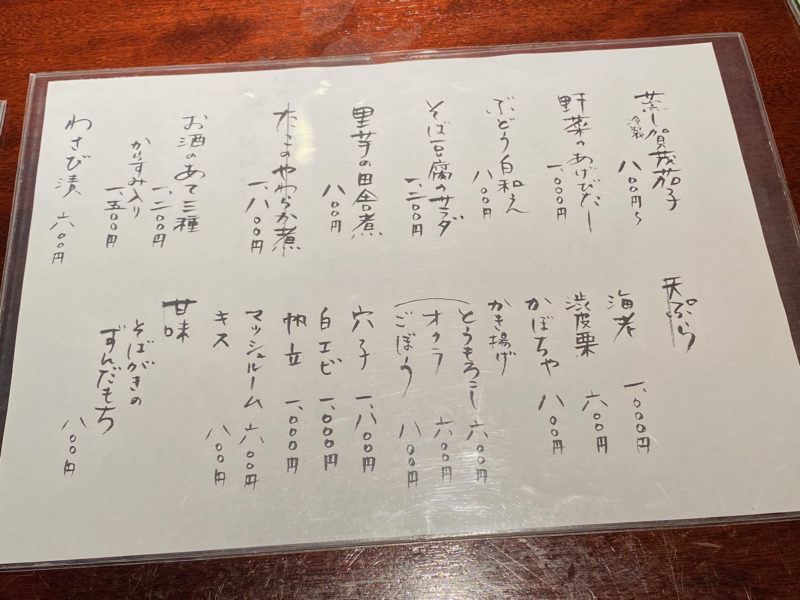 蒸し賀茂茄子
冷製
八〇〇円〜
野菜のあげびたし
一、〇〇〇円
ぶどう白和え
八〇〇円
そば豆腐のサラダ
一、二〇〇円
里芋の田舎煮
八〇〇円
たこのやわらか煮
一、八〇〇円
お酒のあて三種
一、二〇〇円
からすみ入り
一、五〇〇円
わさび漬
六〇〇円
天ぷら
海老
一、〇〇〇円
渋皮栗
六〇〇円
かぼちゃ
八〇〇円
かき揚げ
とうもろこし
六〇〇円
オクラ
六〇〇円
ごぼう
八〇〇円
穴子
一、八〇〇円
白エビ
一、〇〇〇円
帆立
一、〇〇〇円
マッシュルーム
六〇〇円
キス
八〇〇円
甘味
そばがきの
ずんだもち
八〇〇円